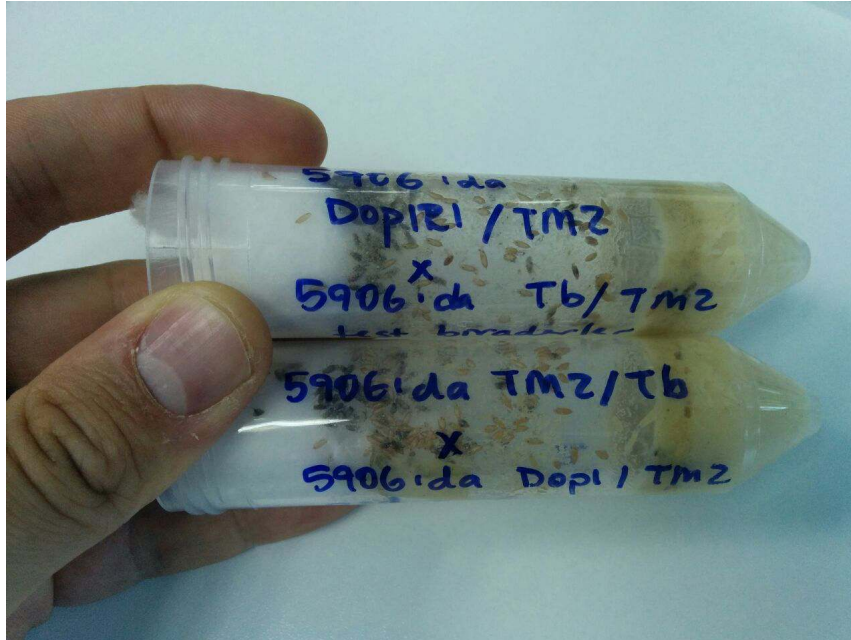 5906 ida
DopIRI / TM2
x
5906 ida Tb/TM2
test
5906 ida TM2/Tb
x
5906 ida DopI / TM2